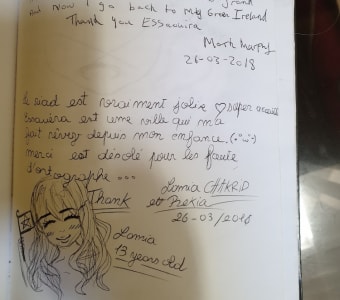 but now I go back to my Green Ireland
Thank you Essaouira
Mark Murphy
26-03-2018
Le riad est vraiment jolie ♡ super accueil
Essaouira est une ville qui m'a
fait rêver depuis mon enfance.
merci est désolé pour les faute
d'ortographe ...
Lamia CHAKRID
Thank et Rekia
26-03/2018
Lamia
13 years old